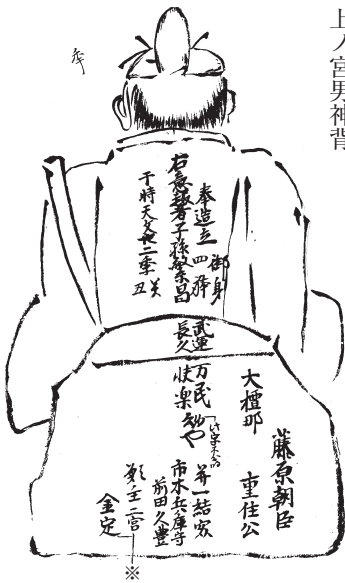 上ノ宮男神背
奉造立 御身
四躰
右意趣者子孫繁昌
于時天文廿二季癸
丑
武運
長久
万民
快楽
大檀那
藤原朝臣
重住公
并一結衆
市木兵庫守
前田久豊
願主二宮
金定
※